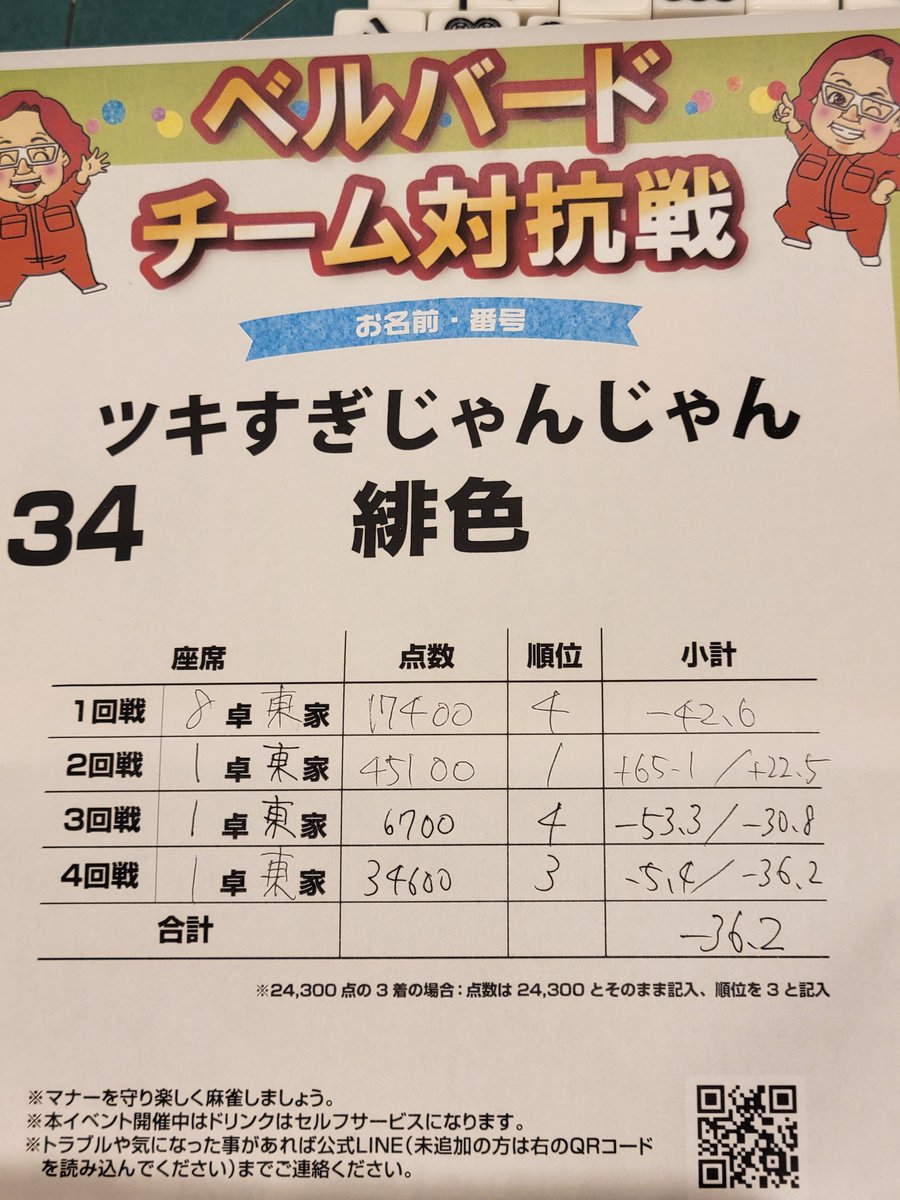 ベルバード
チーム対抗戦
お名前・番号
ツキすぎじゃんじゃん
34 緋色
座席 点数 順位 小計
1回戦 8 卓 東 家 17400 4 -42.6
2回戦 1 卓 東 家 45100 1 +65.1 / +22.5
3回戦 1 卓 東 家 6700 4 -53.3 / -30.8
4回戦 1 卓 東 家 34600 3 -5.4 / -36.2
合計 -36.2
※24,300点の3着の場合：点数は24,300とそのまま記入、順位を3と記入
※マナーを守り楽しく麻雀しましょう。
※本イベント開催中はドリンクはセルフサービスになります。
※トラブルや気になった事があれば公式LINE（未追加の方は右のQRコード
を読み込んでください）までご連絡ください。